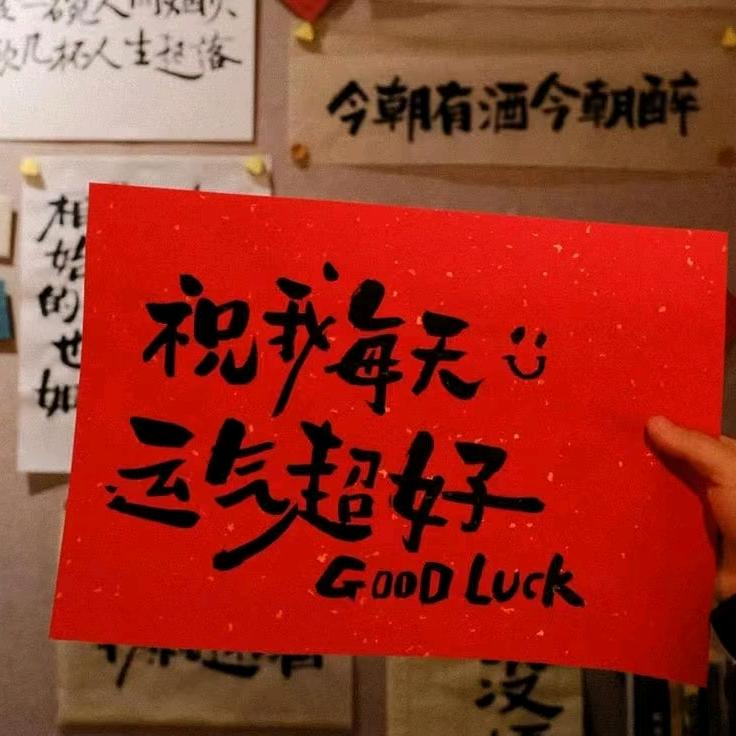 几杯人生起落
今朝有酒今朝醉
相
始
的
也
如
祝我每天
运气超好
GOOD LUCK
没